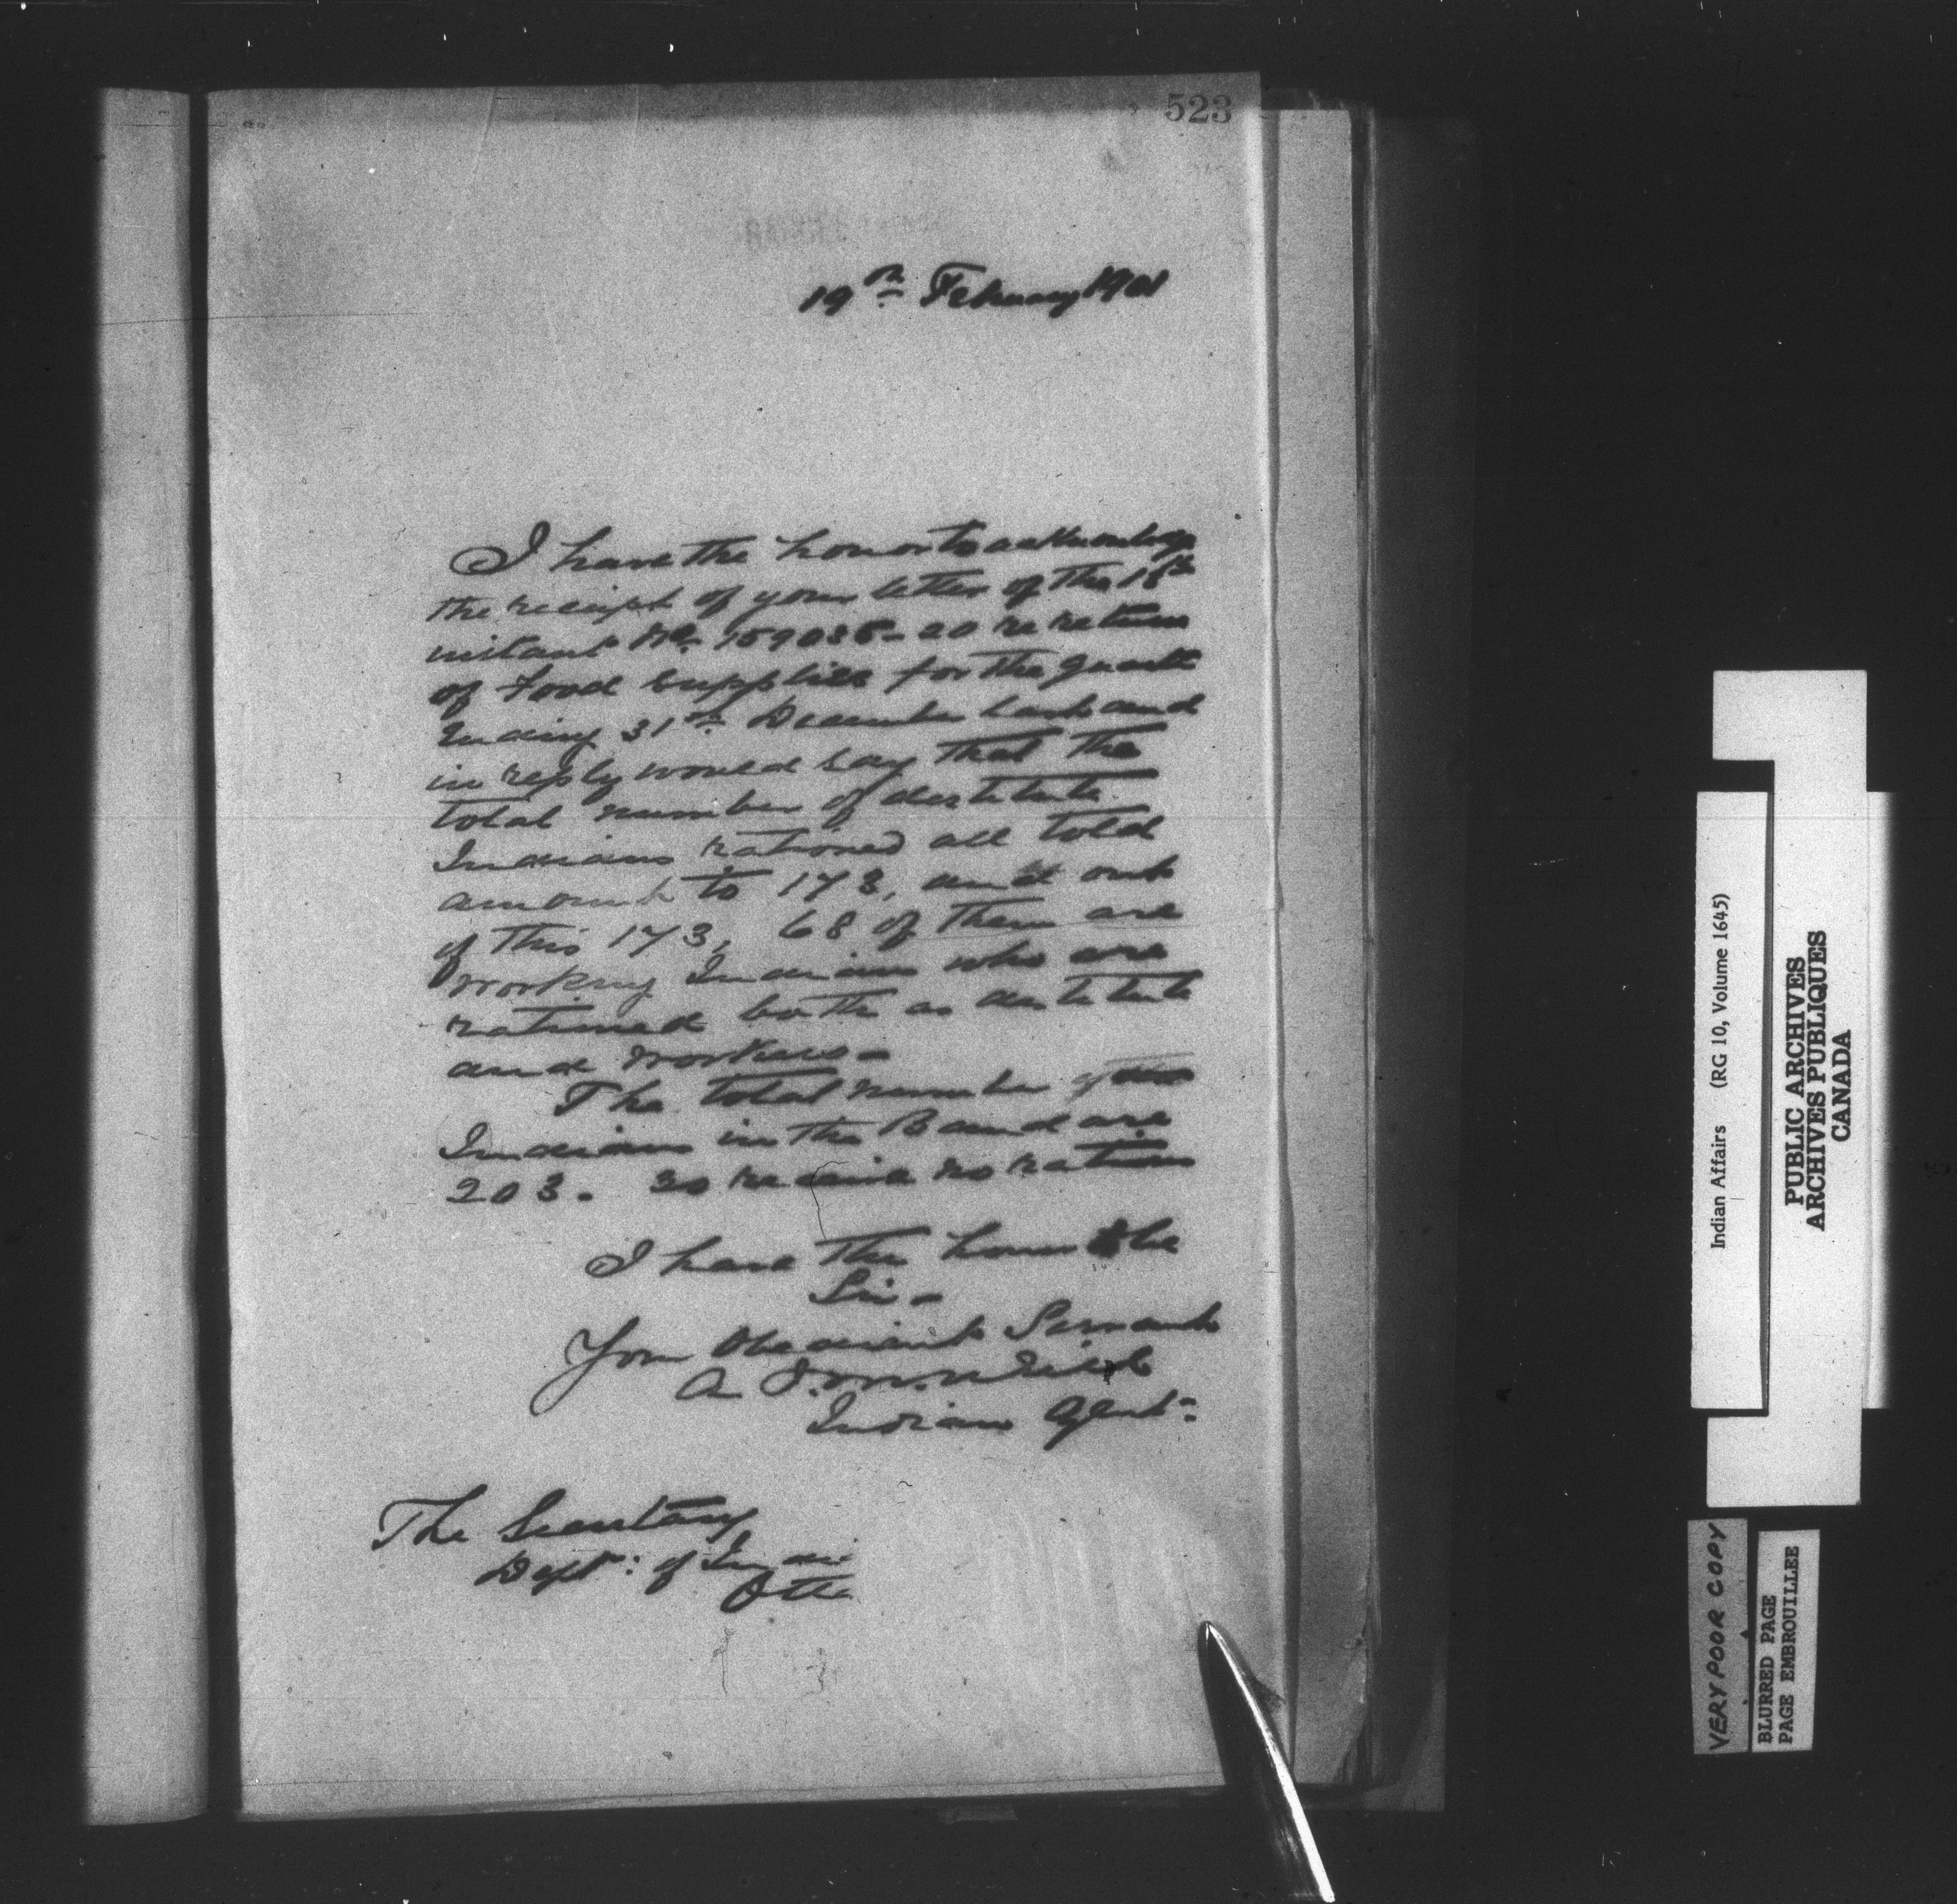 523
19th February 1901
I have the honor to acknowledge
the receipt of your letter of the 18th
instant No. 159035- as re return
of food supplies for the quarter
Ending 31st December last and
in reply would say that the
total number of destitute
Indians rationed all told
amount to 173, and out
of this 173, 68 of them are
working Indians who are
rationed both as destitute
and workers-
The total number of
Indians in the Band are
203. 30 receive no rations
I have the honor to be
Sir-
Your Obedient Servant
A
Indian Agent-
The Secretary
Dept: of Indi
Otta
Indian Affairs (RG 10, Volume 1645)
PUBLIC ARCHIVES
ARCHIVES PUBLIQUES
CANADA
VERY POOR COPY
BLURRED PAGE
PAGE EMBROUILLEE